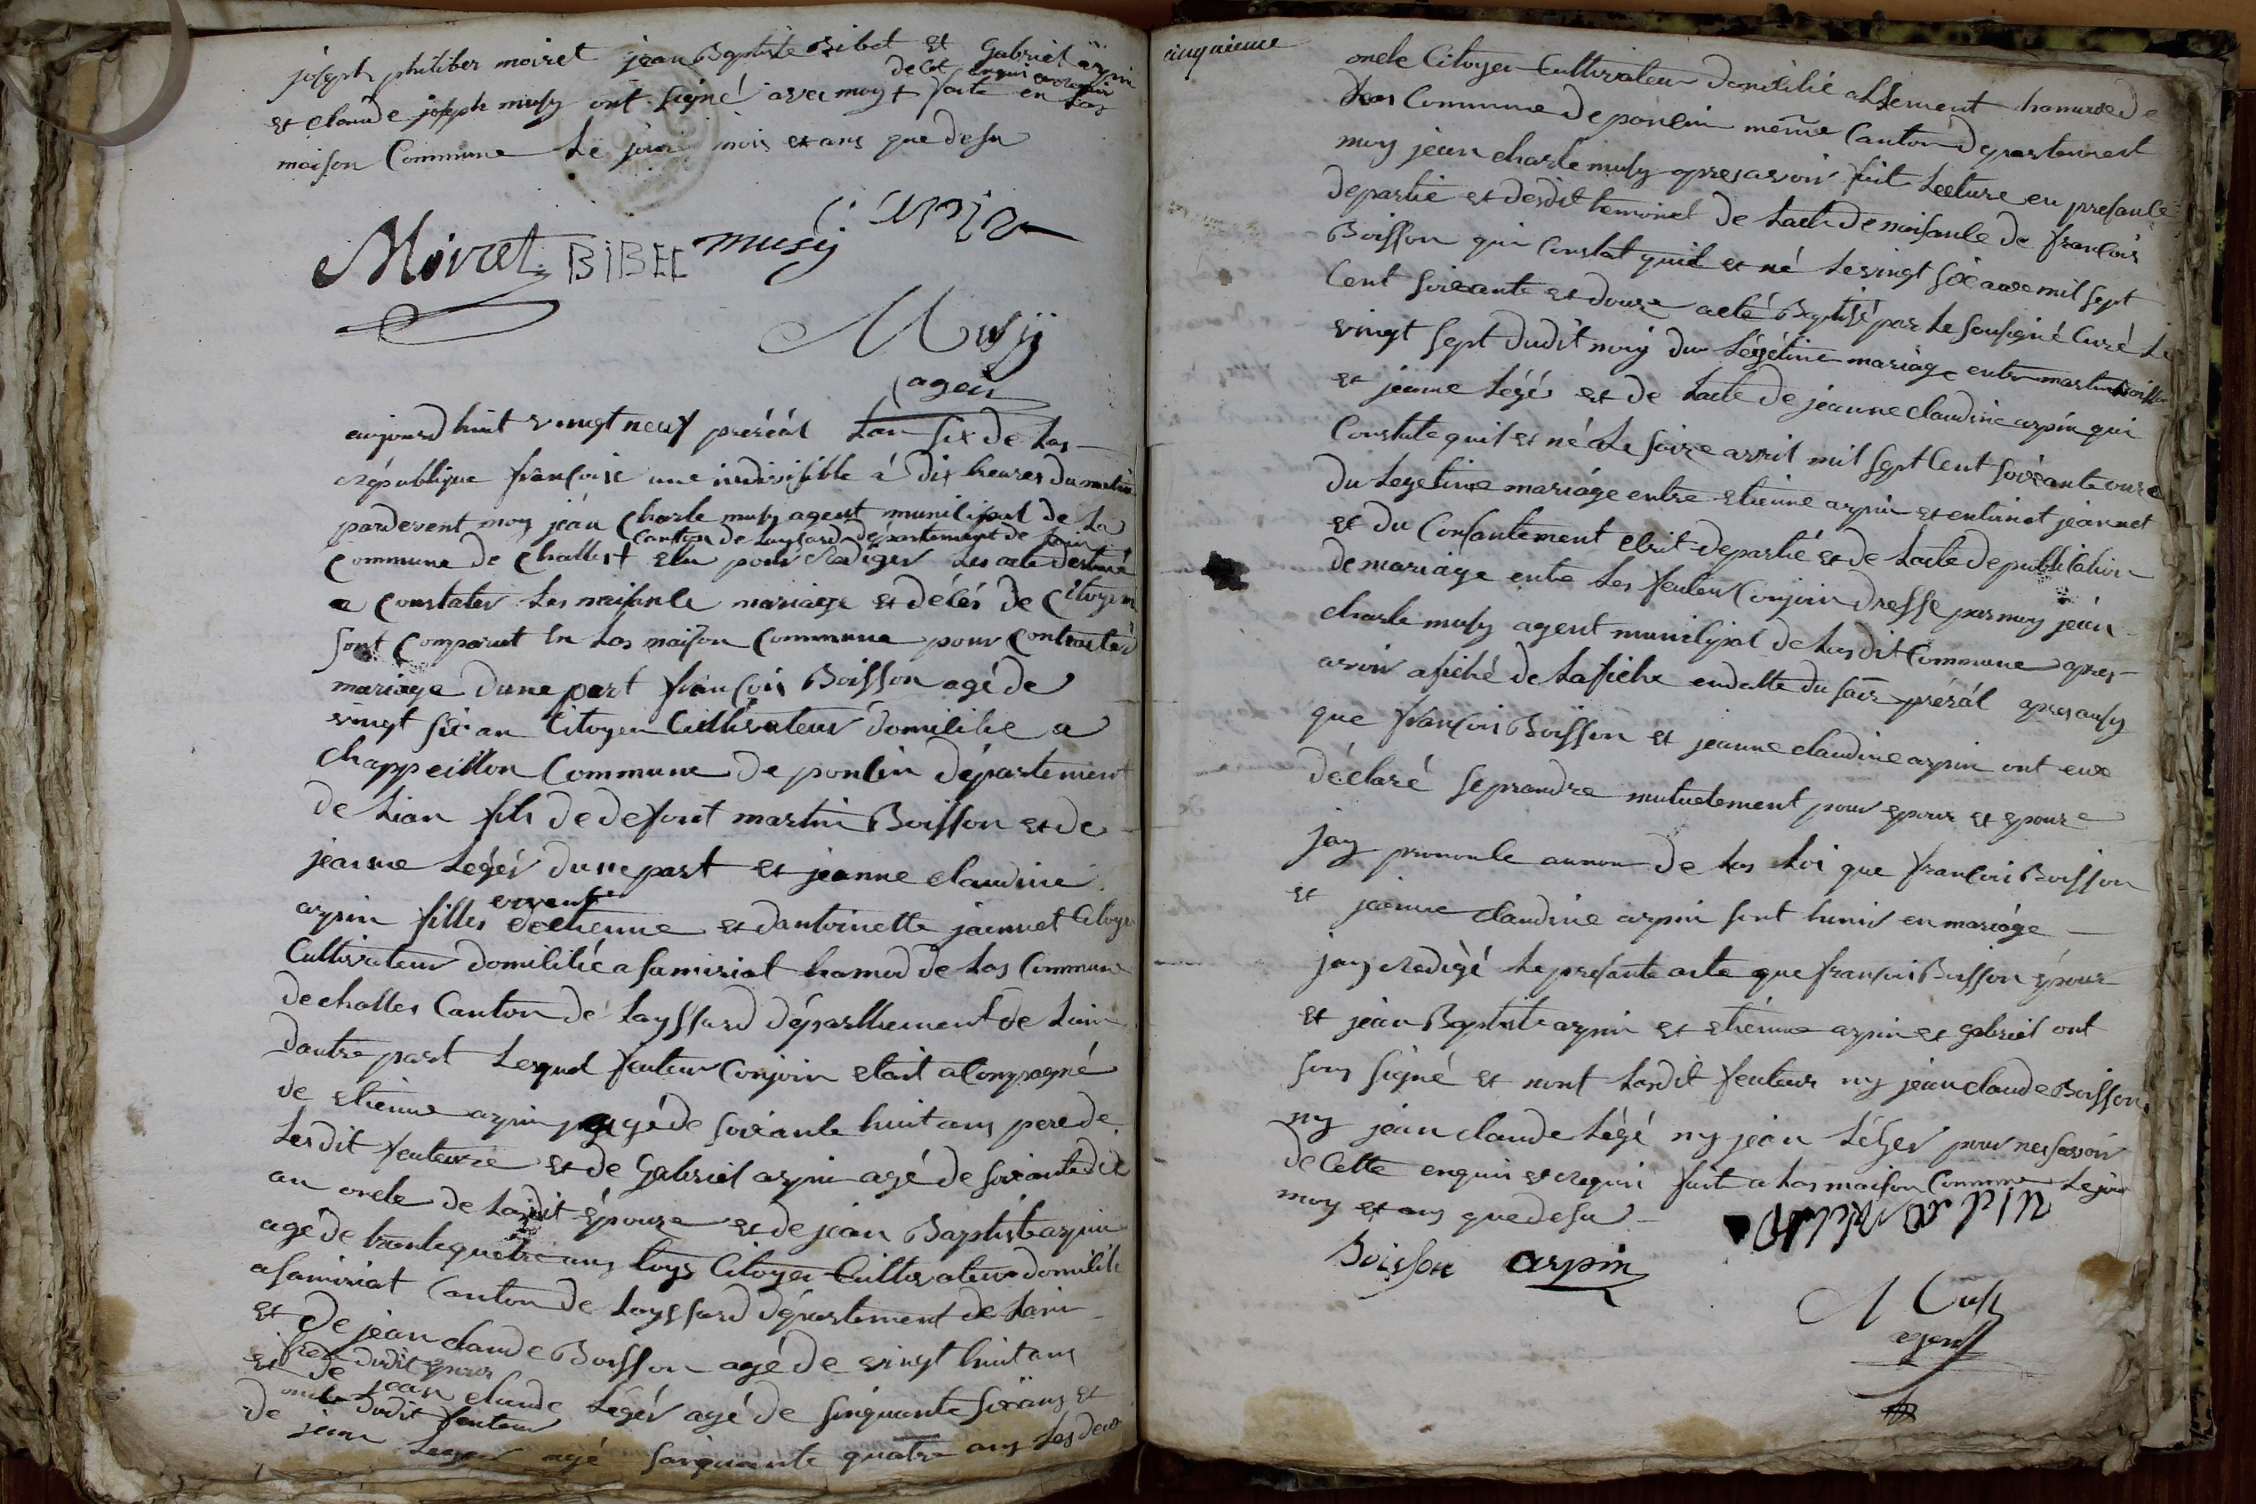 joseph philiber moiret jean Baptiste Bibet et Gabriel arpin
de cet enquis et requis
et claude joseph musy ont signé avec moy + faite en las
maison Commune Le jour mois et ans que desu
Moiret BIBEt musy arpin
Musy
agent
aujourdhuit vingt neuf preréal Lan six de las
république françoise une indivisible à dix heures du matin
pardevent moy jéan Charle musy agent municipal de La
Canton de Layssard département de Lain
Commune de Challes + elu pour Rediger Les acte destiné
a Constater Les naisance mariage et décés de Citoyen
sont Comparut en Las maison Commune pour Contracter
mariage dune part françois Boisson agé de
vingt six an Citoyen Cultivateur domicilie a
Chappeillon Commune de poncin département
de Lian fils de defont martin Boisson et de
jeanne Legér dune part et jeanne claudine
vivent
arpin filles detienne et dantoinette jannet Citoyen
Cultivateur domicilié a samiriat hamod de Las Commune
de challes Canton de Layssard départhement de Lain
dautre part Lesquel feuteur Conjoin etait acompagné
de etienne arpin agé de soixante huit ans pere de
Lesdit feuteure et de Gabriel arpin agé de soixante dix
an oncle de Lasdit épouze et de jéan Baptiste arpin
agé de trente quatre ans tous Citoyen Cultivateur domicilie
a samiriat Canton de Layssard département de Lain
et de jean claude Boisson agé de vingt huit ans
frere dudit epour
et de jean claude Legér agé de sinquante six ans et
oncle dudit feuteur
de jean Leger agé sainquante quatre ans Les deux
cinquieme
oncle Citoyen Cultivateur domicilié alement hamude de
Las Commune de poncin même Canton departement
moy jean charle musy apres avoir fait Lecture en presance
de partie et desdit temoinct de Lacte de naisance de francois
Boisson qui Constat quil et né Le vingt six aux mil sept
Cent soixante et douze aeté Baptisé par Le sousigné Curé Le
vingt sept dudit moy du Légétime mariage entre martin Boisson
et jeanne Légé et de Lacte de jeanne claudine arpin qui
Constate quil et né Le seize avril mil sept Cent soixante onze
du Legetime mariage entre etienne arpin et entoinet jeannet
et du Consantement elrit de partié et de Lacte de publication
de mariage entre Les feuteur Conjoin dresse par moy jéan
charle musy agent municipal de Lasdit Commune apres
avoir afiché de Lafiche endatte du sais préréàl apres ausy
que françois Boisson et jeanne claudine arpin ont eux
déclaré se prandre mutuelement pour epour et epouze
jay prononcé aunom de Las Loi que françois Boisson
et jeanne claudine arpin sont hunis en mariage
jay redigé Le presante acte que francois Boisson épour
et jéan Baptiste arpin et etiénne arpin et gabriel ont
sous signé et nont Lasdit feuteur ny jean claude Boisson
ny jean claude Légé ny jean Léger pour ne savoir
de Cette enquis et requis faite a Las maison Commune Le jour
moy et ans que desu
Boisson arpin
Musy
agent